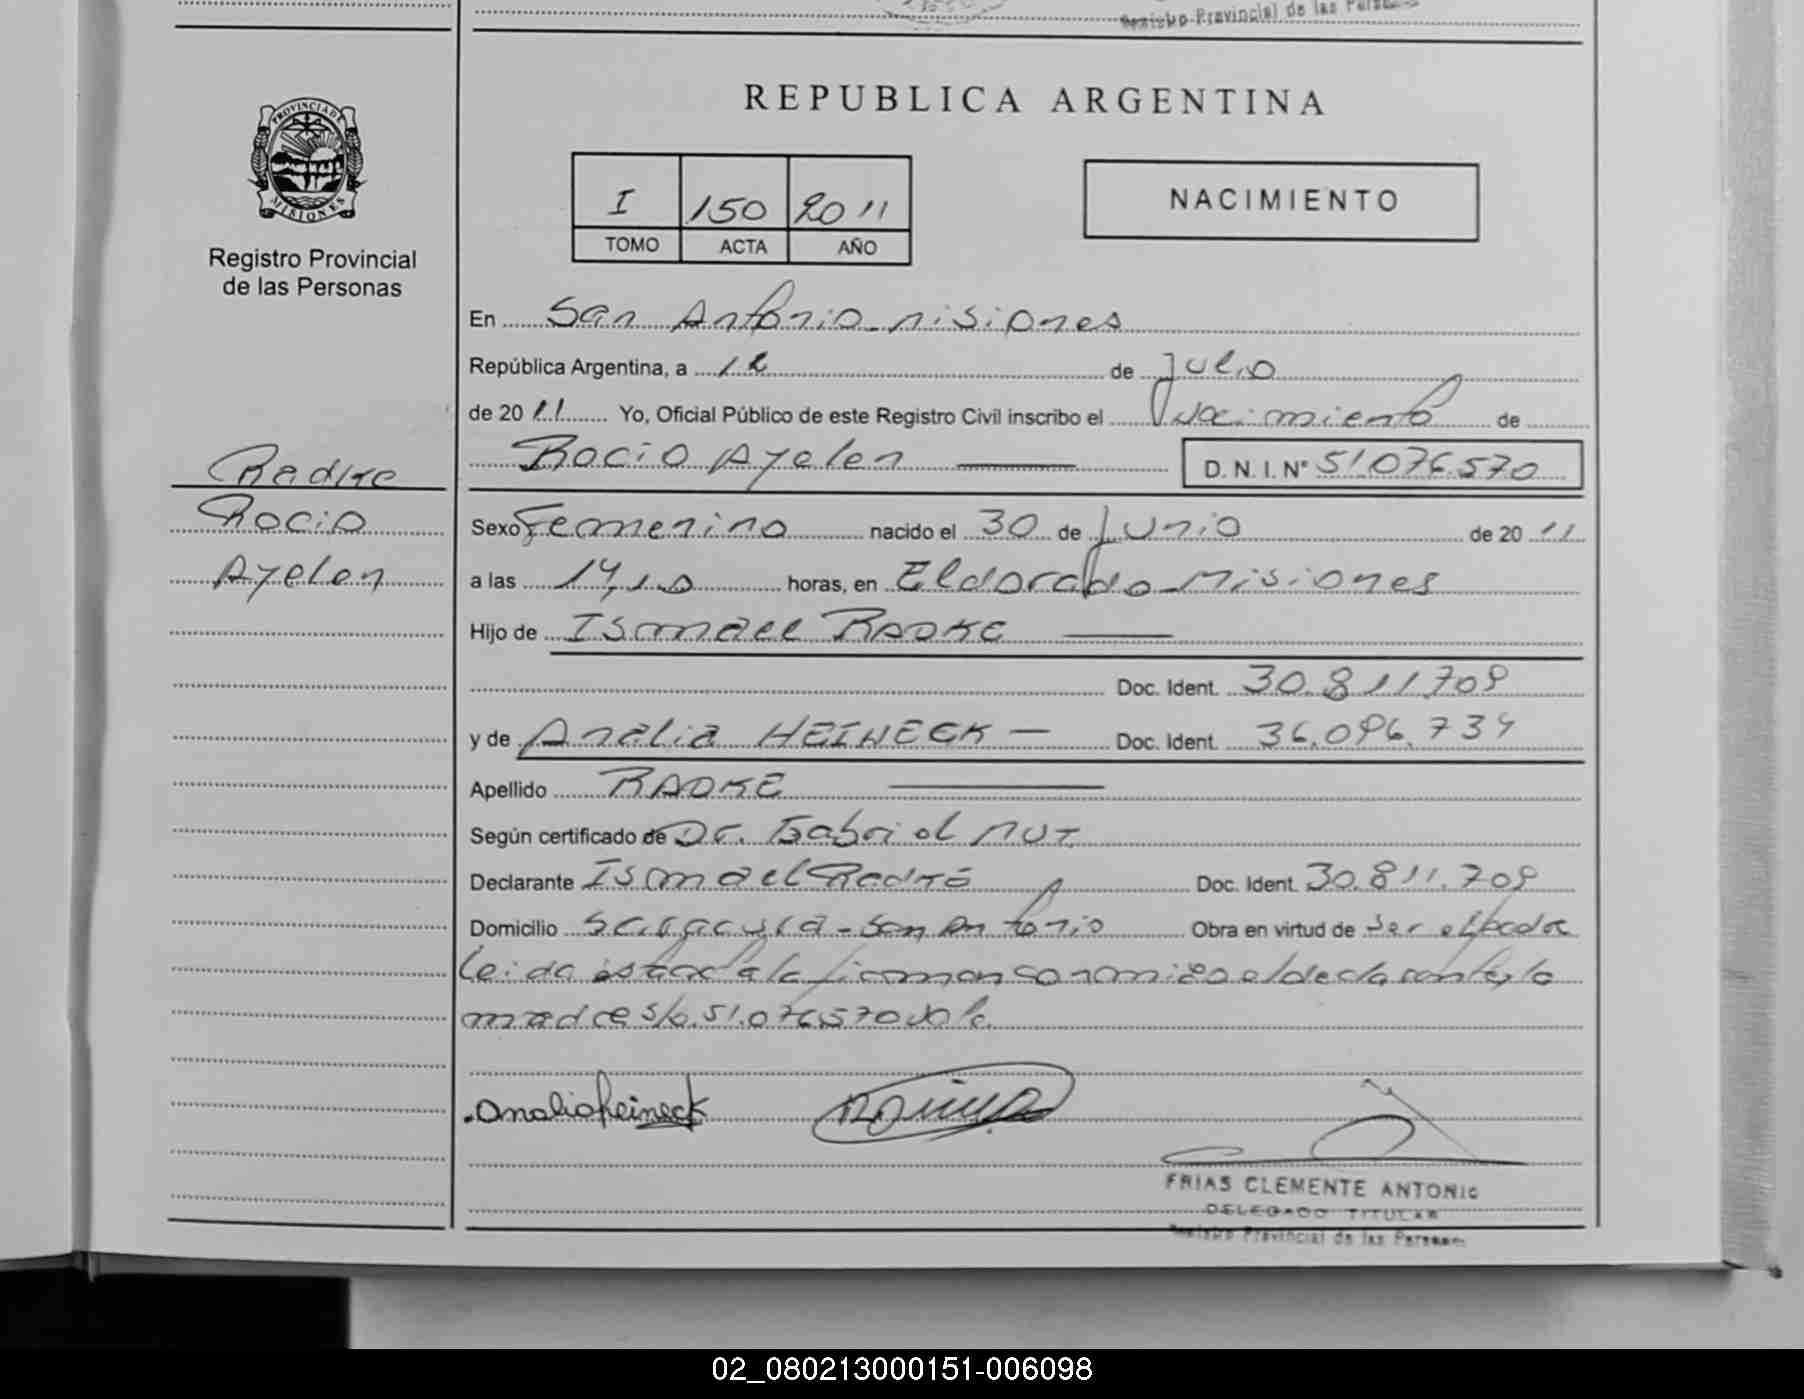 Registro Provincial de las Personas
REPUBLICA ARGENTINA
PROVINCIA DE
MISIONES
Registro Provincial
de las Personas
I 150 2011
TOMO ACTA AÑO
NACIMIENTO
En San Antonio Misiones
República Argentina, a 12 de Julio
de 20 11 Yo, Oficial Público de este Registro Civil inscribo el Nacimiento de
Rocio Ayelen D. N. I. N° 51.076.570
Radke
Rocio
Ayelen
Sexo Femenino nacido el 30 de Junio de 20 11
a las 14,10 horas, en Eldorado - Misiones
Hijo de Ismael RADKE
Doc. Ident. 30.811.709
y de Analia HEINECK — Doc. Ident. 36.096.734
Apellido RADKE
Según certificado de Dr. Gabriel
Declarante Ismael Radke Doc. Ident. 30.811.709
Domicilio San Antonio Obra en virtud de ser el padre
Leida esta acta la firman conmigo el declarante y la
madre s/r. 51.076570 Vale.
analia heineck
FRIAS CLEMENTE ANTONIO
DELEGADO TITULAR
Registro Provincial de las Personas
02_080213000151-006098